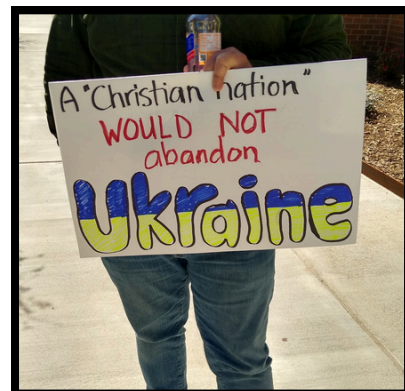 A "Christian nation"
WOULD NOT
abandon
Ukraine